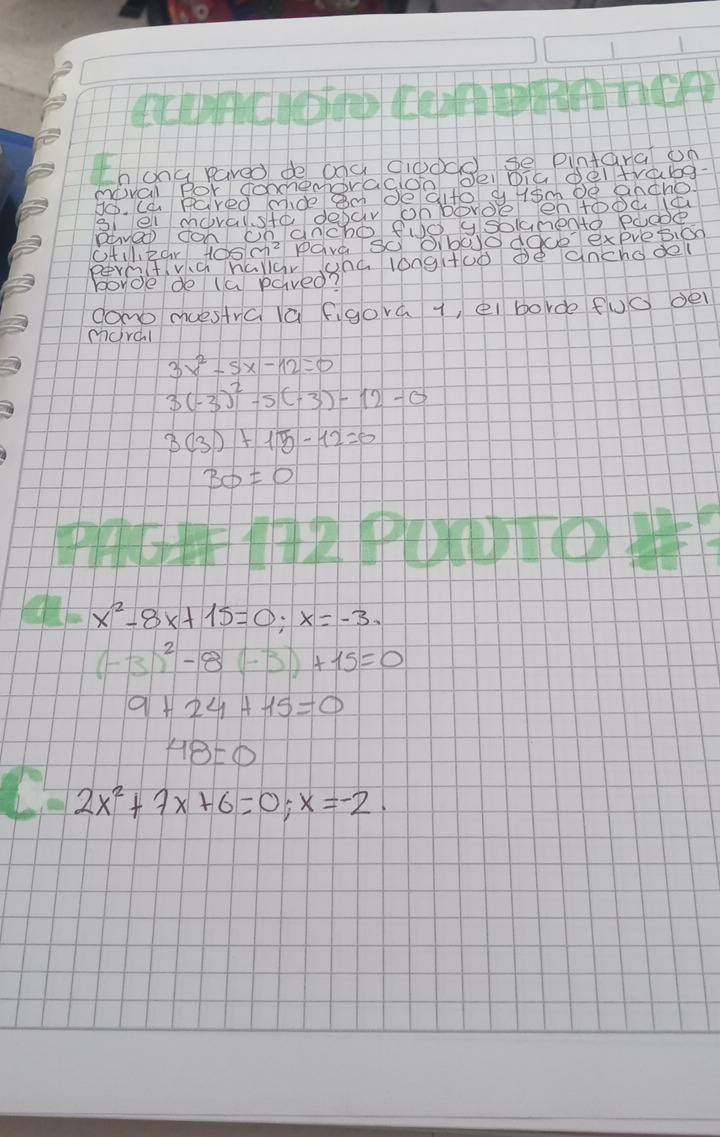 ECUACION CUADRATICA
En una pared de una ciudad se pintara un
moral por conmemoracion del dia del traba-
jo. La pared mide 8m de alto y 15m de ancho.
si el moralista dejar un borde en toda la
pared con un ancho fijo y solamento puede
utilizar 100m² para su dibujo ¿que expresion
permitiria hallar una longitud de ancho del
borde de la pared?
como muestra la figora 1, el borde fijo del
moral
3x²-5x-12=0
3(-3)²-5(-3)-12-0
3(3)+15-12=0
30=0
PAG# 172 PUNTO #
a- x²-8x+15=0; x=-3.
(-3)²-8(-3)+15=0
9+24+15=0
48=0
C- 2x²+7x+6=0; x=-2.